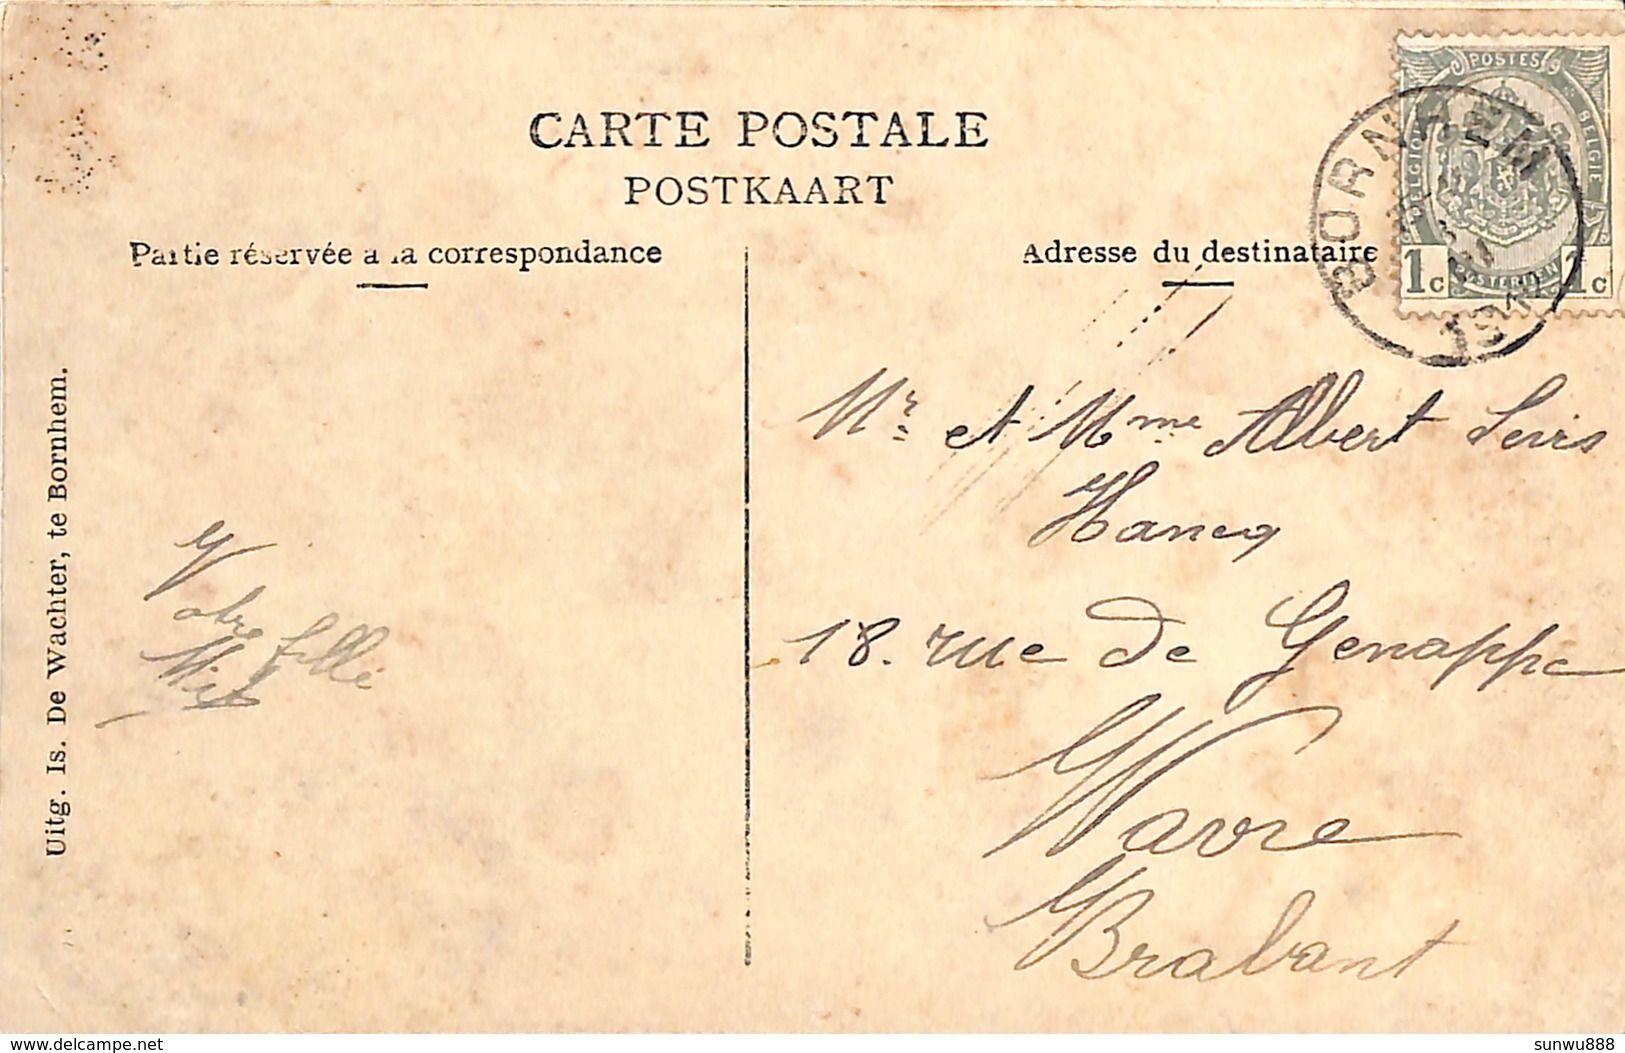 CARTE POSTALE
POSTKAART
Partie réservée à la correspondance
Adresse du destinataire
POSTES
BELGIQUE
BELGIE
1c POSTERIJEN 1c
BORNHEM
Uitg. Is. De Wachter, te Bornhem.
Votre fille
Mr et Mme Albert
Hancq
18. rue de Genappe
Wavre
Brabant
delcampe.net
sunwu888